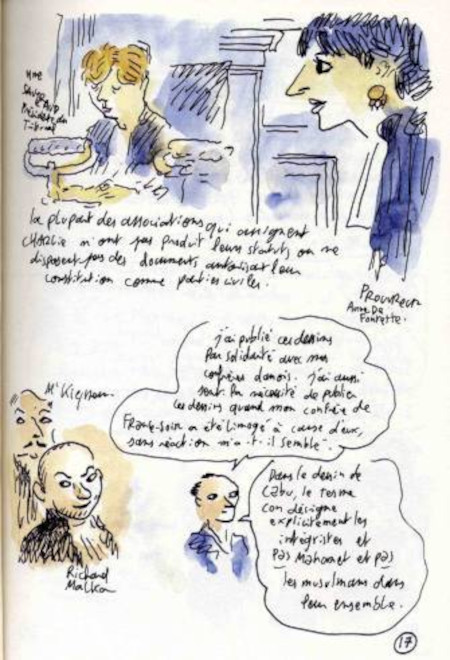 Mme
Sauge
Présidente du
Tribunal
la plupart des associations qui assignent
CHARLIE n'ont pas produit leurs statuts ou ne
disposent pas des documents autorisant leur
constitution comme parties civiles.
PROCUREUR
Anne De
Fontette.
j'ai publié ces dessins
par solidarité avec mes
confrères danois. j'ai aussi
senti la nécessité de publier
ces dessins quand mon confrère de
France-Soir a été limogé à cause d'eux,
sans réaction m'a-t-il semblé".
Mr Kigman
Richard
Malka
Dans le dessin de
Cabu, le terme
con désigne
explicitement les
intégristes et
pas Mahomet et pas
les musulmans dans
leur ensemble.
17